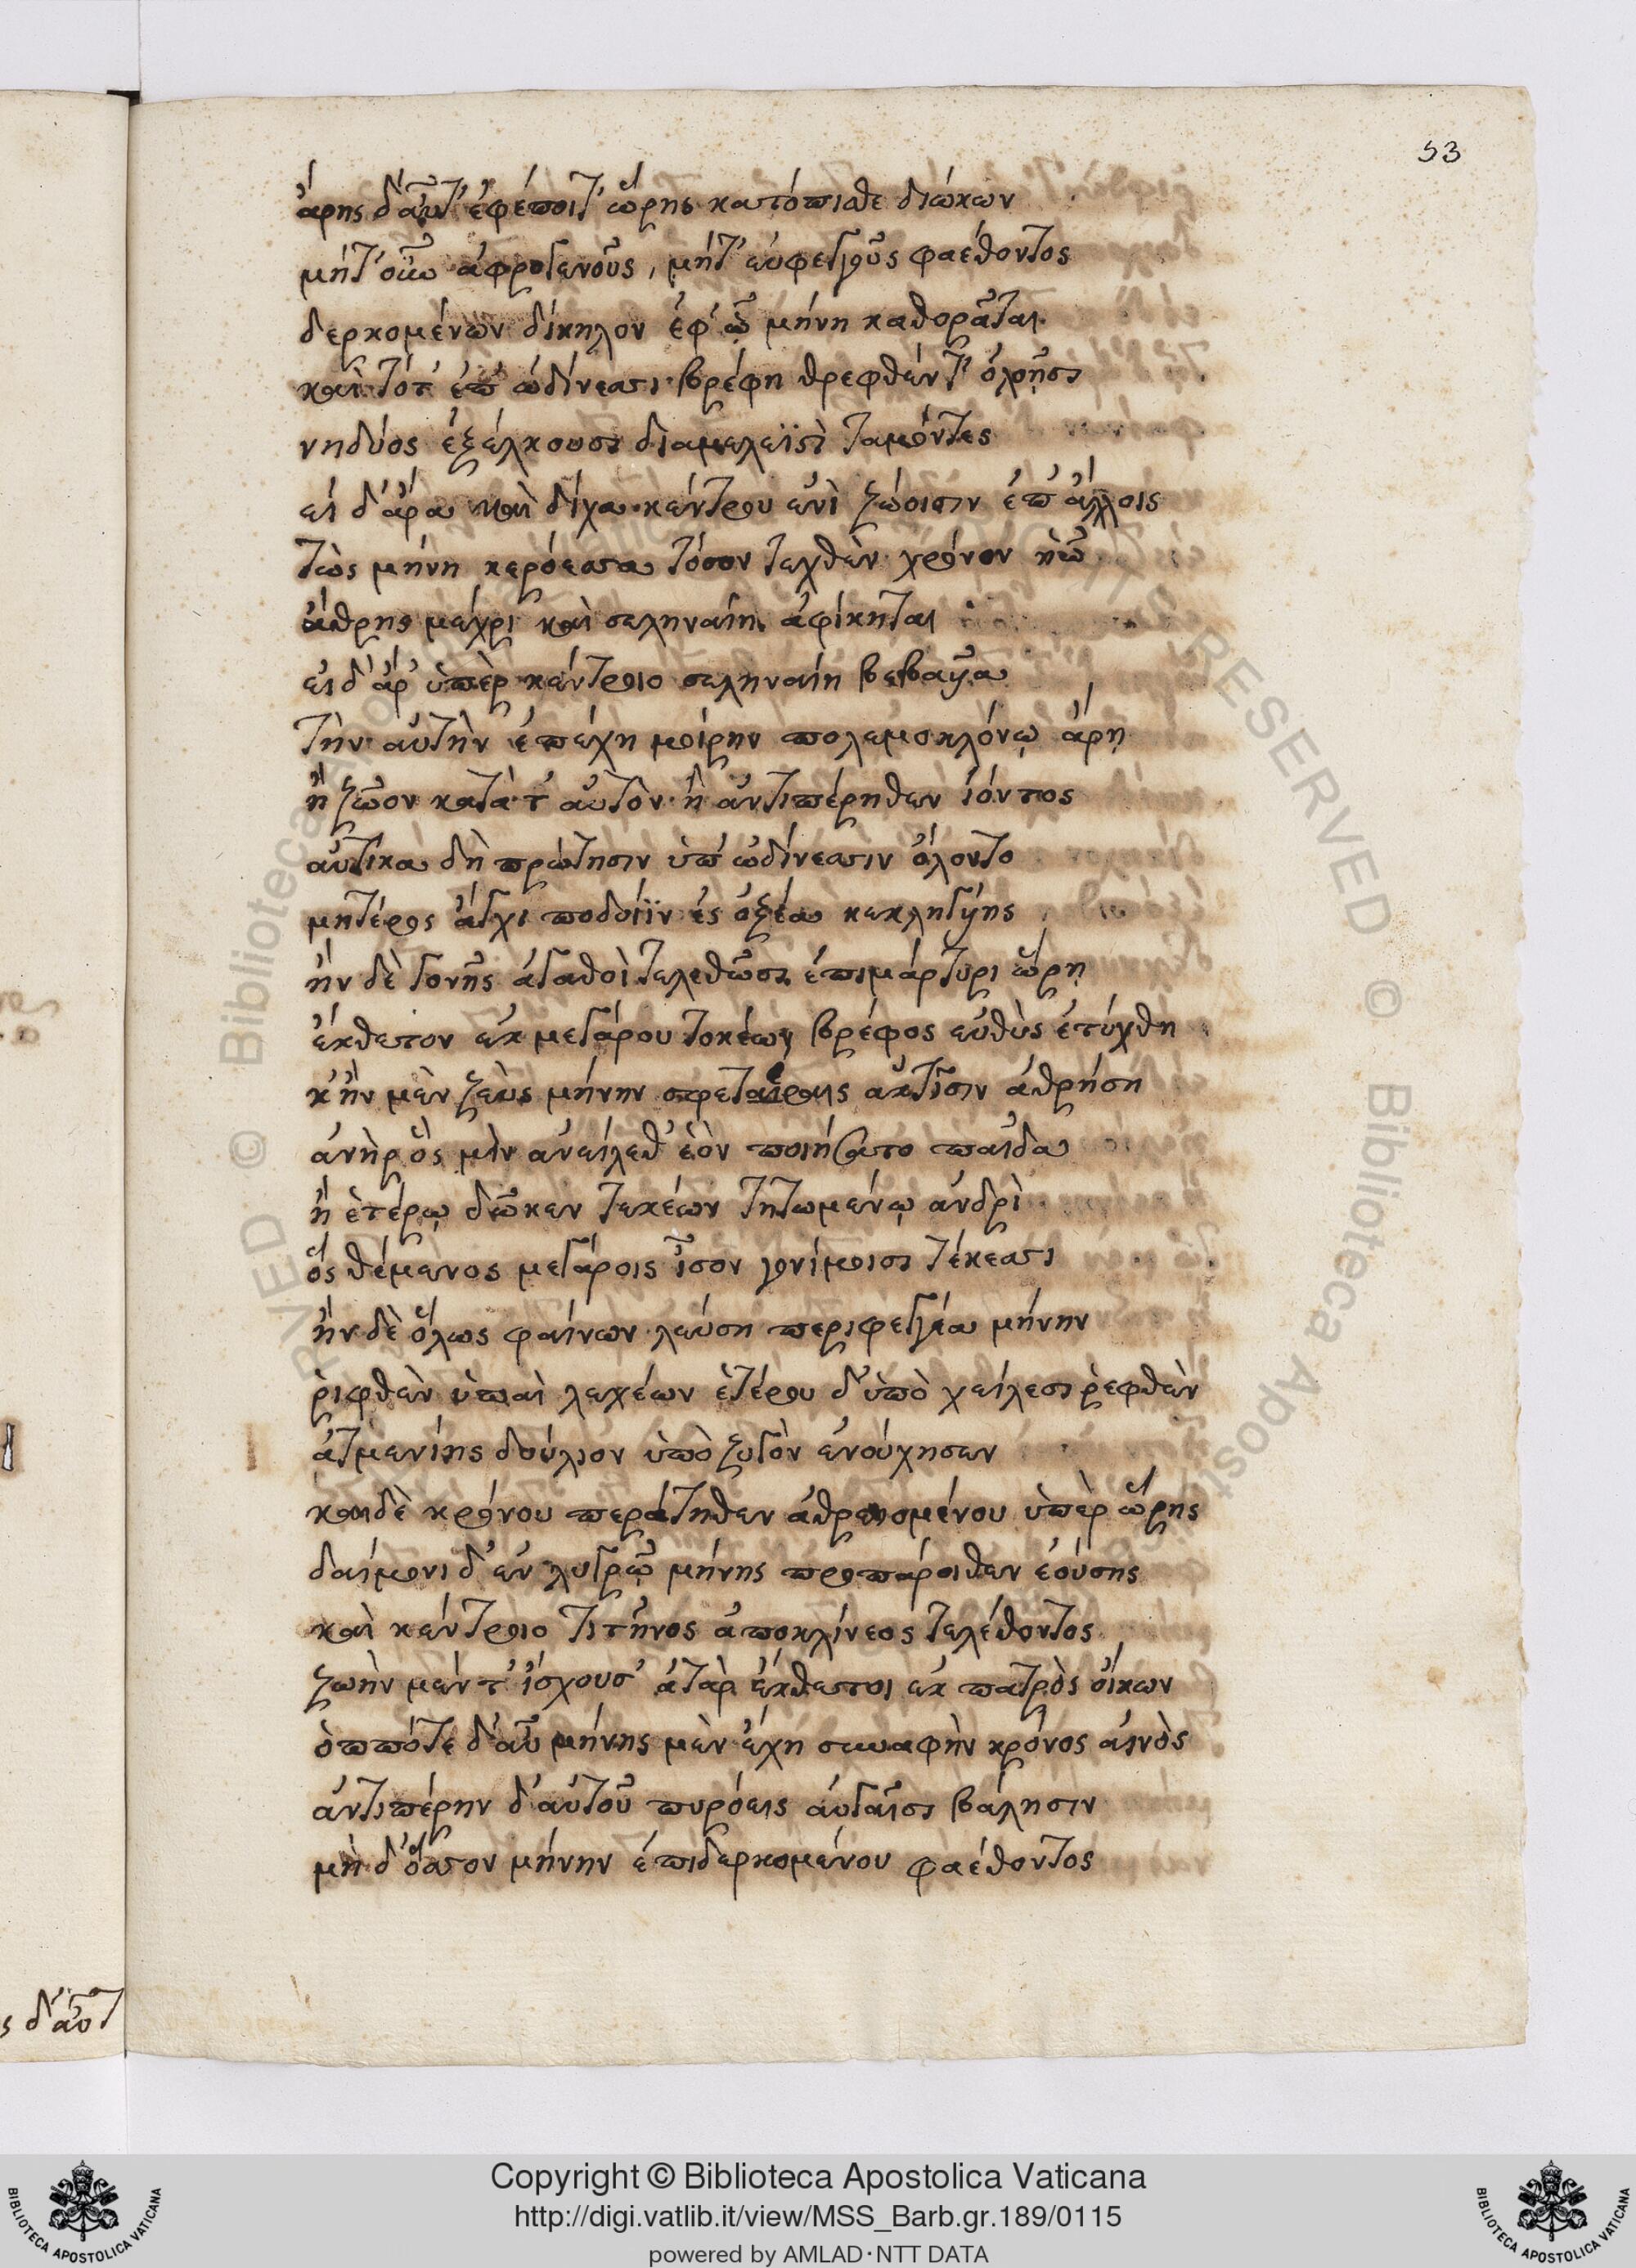 53
ἄρης δ' αὖτ' ἐφέποιτ' ὥρης κατόπισθε διώκων
μήτ' οὖν ἀφρογενοῦς, μήτ' εὐφεγγοῦς φαέθοντος
δερκομένων δίκηλον ἐφ' ᾧ μήνη καθορᾶται.
καὶ τότ' ἐπ' ὠδίνεσσι βρέφη θρεφθέντ' ὀλοῇσι
νηδύος ἐξέλκουσι διαμελεϊστὶ ταμόντες
εἰ δ' ἄρα καὶ δίχα κέντρου ἐνὶ ζώοισιν ἐπ' ἄλλοις
τὼς μήνη κερόεσσα τόσον τεχθὲν χρόνον
ἄθρης μέχρι καὶ σεληναίη ἀφίκηται
εἰ δ' ἄρ' ὑπὲρ κέντροιο σεληναίη βεβαυῖα
τὴν αὐτὴν ἐπέχη μοίρην πολεμοκλόνῳ ἄρῃ
ἢ ζῶον κατά τ' αὐτὸν ἢ ἀντιπέρηθεν ἰόντος
αὐτίκα δὴ πρώτησιν ὑπ' ὠδίνεσσιν ὄλοντο
μητέρος ἄγχι ποδοῖϊν ἐς ὀξέα κεκληγυίης
ἢν δὲ γονῆς ἀγαθοὶ τελεθῶσι ἐπιμάρτυρι ὥρῃ
ἔκθετον ἐκ μεγάρου τοκέων βρέφος εὐθὺς ἐτύχθη
κ' ἢν μὲν ζεὺς μήνην σφετέραις ἀκτῖσιν ἀθρήση
ἀνὴρ ὅς μιν ἀνείλεθ' ἑὸν ποιήσατο παῖδα
ἢ ἑτέρῳ δῶκεν τεκέων τητωμένῳ ἀνδρὶ
ὃς θέμενος μεγάροις ἶσον γνίμοισι τέκεσσι
ἢν δὲ ὅλως φαίνων λεύση περιφεγγέα μήνην
ῥιφθὲν ὑπαὶ λεχέων ἑτέρου δ' ὑπὸ χείλεσι ῥεφθὲν
ἀτμενίης δούλιον ὑπὸ ζυγὸν ἐνούχησεν
καιδὲ κρόνου περάτηθεν ἀθρησομένου ὑπὲρ ὥρης
δαίμονι δ' ἐν λυγρῷ μήνης προπάροιθεν ἐούσης
καὶ κέντροιο τιτῆνος ἀποκλίνεος τελέθοντος
ζωὴν μέν τ' ἴσχουσ' ἀτὰρ ἔκθετοι ἐκ πατρὸς οἴκων
ὁππότε δ' αὖ μήνης μὲν ἔχη συναφὴν κρόνος αἰνὸς
ἀντιπέρην δ' αὐτοῦ πυρόεις αὐγαῖσι βάλησιν
μὴ δ' ὅσσον μήνην ἐπιδερκομένου φαέθοντος
ς δ' αὖτ
Copyright © Biblioteca Apostolica Vaticana
http://digi.vatlib.it/view/MSS_Barb.gr.189/0115
powered by AMLAD·NTT DATA
BIBLIOTECA APOSTOLICA VATICANA
BIBLIOTECA APOSTOLICA VATICANA